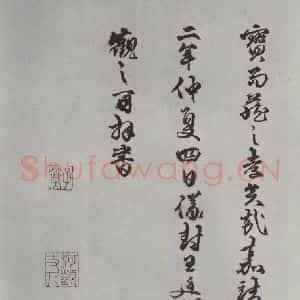 寶而藏之矣哉嘉靖
二年仲夏四日儀封王廷
觀之拜書
Shufawang.CN